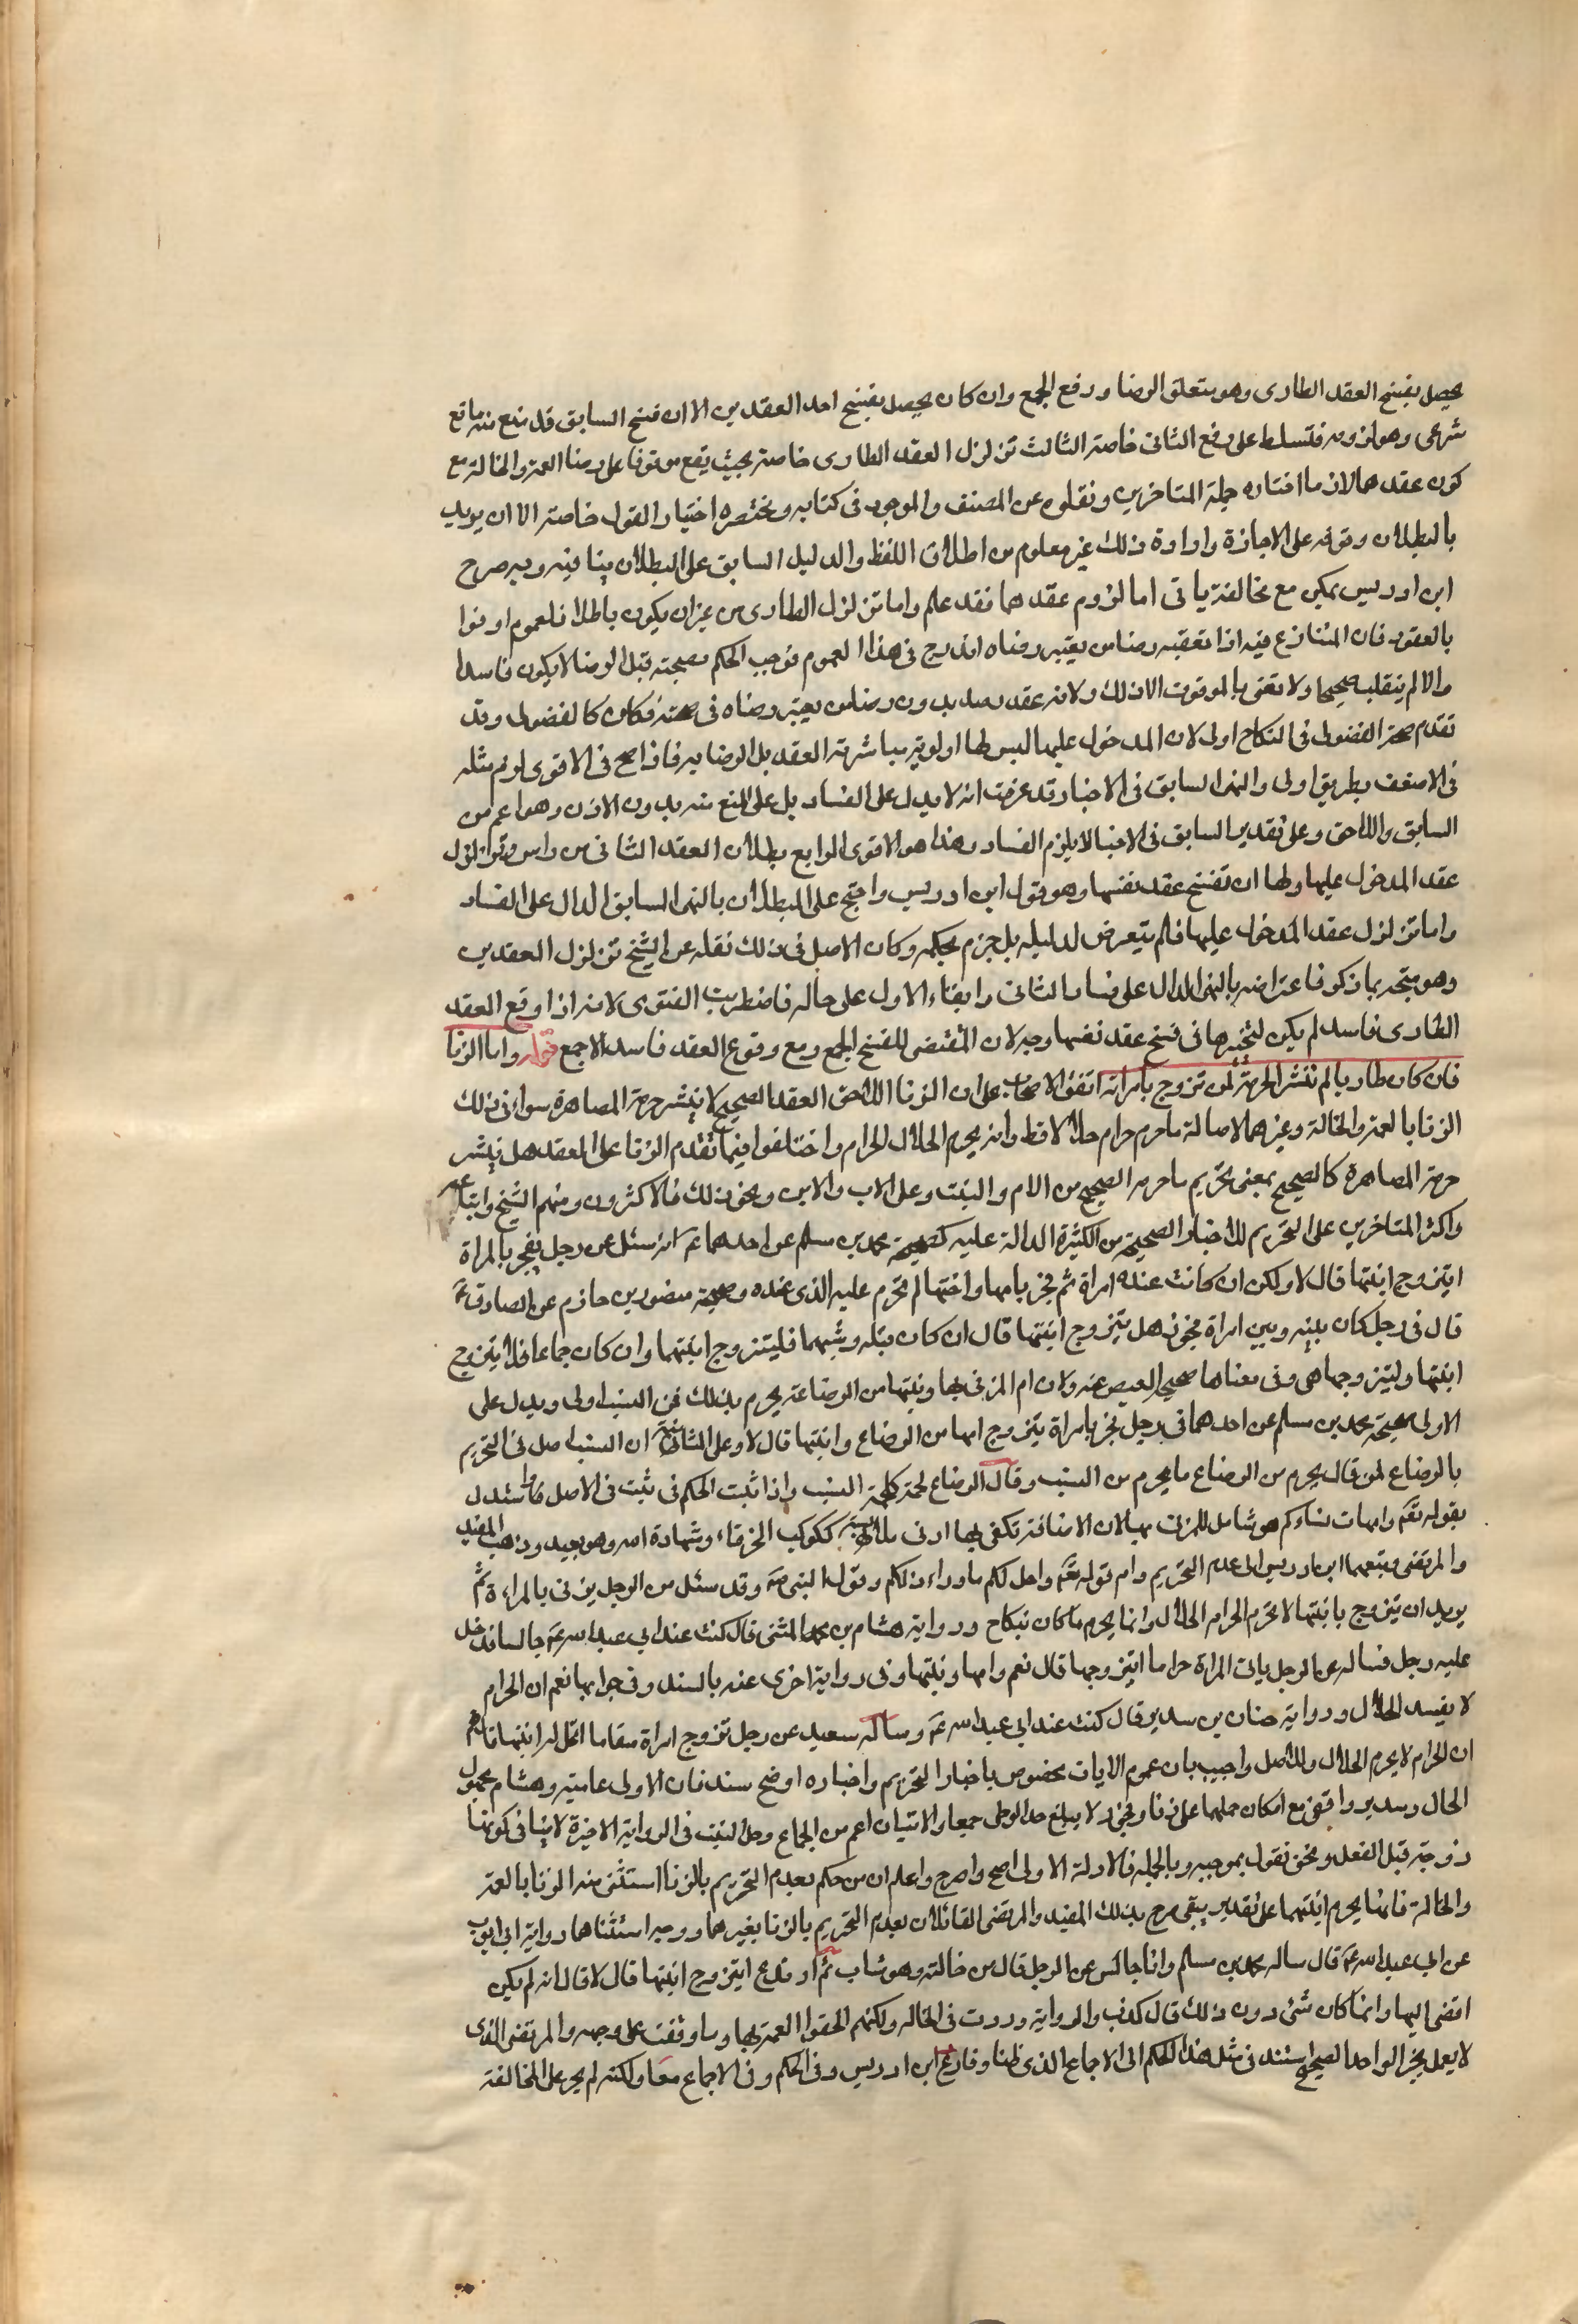 يحصل بفسخ العقد الطارى وهو متعلق الرضا ورفع الجمع وان كان يحصل بفسخ احد العقدين الا ان فسخ السابق قد منع منه مانع
شرعى وهو لزومه فتسلط على رفع الثانى خاصة الثالث تزلزل العقد الطارى خاصة بحيث يقع موقوفا على رضا العمة والخالة مع
كون عقدهما لازما اختاره جملة المتاخرين ونقلوه عن المصنف والموجود فى كتابه ومختصره اختيار القول خاصة الا ان يريد
بالبطلان وقوفه على الاجازة وارادة ذلك غير معلوم من اطلاق اللفظ والدليل السابق على البطلان ينافيه وبه صرح
ابن ادريس يمكن مع مخالفة ياتى اما لزوم عقدهما فقد علم واما تزلزل الطارى من غير ان يكون باطلا فلعموم اوفوا
بالعقود فان المتنازع فيه اذا تعقبه رضا من يعتبر رضاه اندرج فى هذا العموم فوجب الحكم بصحته قبل الرضا لا يكون فاسدا
والا لم ينقلب صحيحا ولا نعنى بالموقوف الا ذلك ولانه عقد صدر بدون رضا من يعتبر رضاه فى صحته فكان كالفضولى وقد
تقدم صحة الفضولى فى النكاح اولى لان المدخول عليها ليس لها اولوية مباشرة العقد بل الرضا به فاذا صح فى الاقوى لزم مثله
فى الاضعف بطريق اولى والنهى السابق فى الاخبار قد عرفت انه لا يدل على الفساد بل على المنع منه بدون الاذن وهو اعم من
السابق واللاحق وعلى تقدير السابق فى الاخبار لا يلزم الفساد وهذا هو الاقوى الرابع بطلان العقد الثانى من راس وتزلزل
عقد المدخول عليها ولها ان تفسخ عقد نفسها وهو قول ابن ادريس واحتج على البطلان بالنهى السابق الدال على الفساد
واما تزلزل عقد المدخول عليها فلم يتعرض لدليله بل جزم بحكمه وكان الاصل فى ذلك نقله عن الشيخ تزلزل العقدين
وهو متجه بما ذكر فاعترضه بالنهى الدال على فساد الثانى وابقاء الاول على حاله فاضطربت الفتوى لانه اذا وقع العقد
الطارى فاسد لم يكن لتخييرها فى فسخ عقد نفسها وجه لان المقتضى للفسخ الجمع ومع وقوع العقد فاسدا لا جمع قوله واما الزنا
فان كان طاريا لم تنشر الحرمة لمن تزوج بامراته اتفق الاصحاب على ان الزنا اللاحق العقد الصحيح لا ينشر حرمة المصاهرة سواء فى ذلك
الزنا بالعمة والخالة وغيرهما لاصالة ما حرم حرام حلالا قط وانه يحرم الحلال الحرام واختلفوا فيما تقدم الزنا على العقد هل ينشر
حرمة المصاهرة كالصحيح بمعنى تحريم ما حرمه الصحيح من الام والبنت وعلى الاب والابن ونحو ذلك فالاكثرون ومنهم الشيخ واتباعه
واكثر المتاخرين على التحريم للاخبار الصحيحة من الكثيرة الدالة عليه كصحيحة محمد بن مسلم عن احدهما ع انه سئل عن رجل يفجر بالمراة
ايتزوج ابنتها قال لا ولكن ان كانت عنده امراة ثم فجر بامها واختها لم تحرم عليه الذى عنده وصحيحة منصور بن حازم عن الصادق ع
قال فى رجل كان بينه وبين امراة فجور هل يتزوج ابنتها قال ان كان قبلة وشبهها فليتزوج ابنتها وان كان جماعا فلا يتزوج
ابنتها وليتزوجها هى وفى معناها صحيح العيص عنه ولان ام المزنى بها وبنتها من الرضاعة يحرم بذلك فمن النسب اولى ويدل على
الاولى صحيحة محمد بن مسلم عن احدهما فى رجل فجر بامراة يتزوج امها من الرضاع وابنتها قال لا وعلى الثانية ان النسب اصل فى التحريم
بالرضاع لمن قال يحرم من الرضاع ما يحرم من النسب وقال الرضاع لحمة كلحمة النسب واذا ثبت الحكم فى ثبت فى الاصل واستدل
بقوله تعم وامهات نساءكم هو شامل للمزنى بها لان الاضافة تكفى لها ادنى ملابسة ككوكب الخرقاء وشهادة الله وهو بعيد وذهب المفيد
والمرتضى وتبعهما ابن ادريس الى عدم التحريم وام قوله تعم واحل لكم ماوراء ذلكم وقول النبى صه وقد سئل من الرجل يزنى بالمراة ثم
يريد ان يتزوج بابنتها لا يحرم الحرام الحلال وانما يحرم ما كان بنكاح ورواية هشام بن محمد المثنى قال كنت عند ابى عبد الله ع جالسا فدخل
عليه رجل فساله عن الرجل ياتى المراة حراما ايتزوجها قال نعم وامها وبنتها وفى رواية اخرى عنه بالسند وفى جوابها نعم ان الحرام
لا يفسد الحلال ورواية حنان بن سدير قال كنت عند ابى عبد الله ع وساله سعيد عن رجل تزوج امراة سفاحا اتحل له ابنتها قال نعم
ان الحرام لا يحرم الحلال وللاصل واجيب بان عموم الايات مخصوص باخبار التحريم واخباره اوضح سند فان الاولى عامية وهشام مجهول
الحال وسدير واقفى مع امكان حملها على زنا وفجور لا يبلغ حد الوطى جمعا والاتيان اعم من الجماع وحل البنت فى الرواية الاخيرة لا ينافى كونها
زوجة قبل الفعل ونحن نقول بموجبه وبالجملة فالادلة الاولى اصح واصرح واعلم ان من حكم بعدم التحريم بالزنا استثنى منه الزنا بالعمة
والخالة فانها يحرم ابنتهما على تقدير يبقى صرح بذلك المفيد والمرتضى القائلان بعدم التحريم بالزنا بغيرهما ووجه استثناها رواية ابى ايوب
عن ابى عبد الله ع قال ساله محمد بن مسلم وانا جالس عن الرجل قال من خالته وهو شاب ثم ارتدع ايتزوج ابنتها قال لا قال انه لم يكن
افضى اليها وانما كان شئ دون ذلك قال كذب والرواية وردت فى الخالة ولكنهم الحقوا العمة بها وما وقفت على وجهه والمرتضى الذى
لا يعمل بخبر الواحد الصحيح استند فى مثل هذا الحكم الى الاجماع الذى ظنا وفارع ابن ادريس وفى الحكم وفى الاجماع معا ولكنه لم يجر على المخالفة